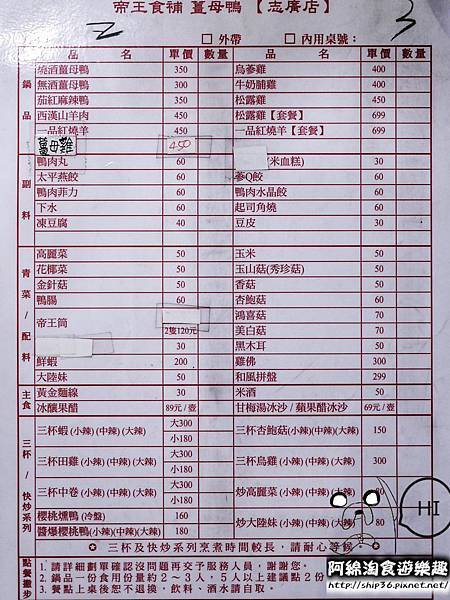 帝王食補 薑母鴨 【志廣店】
2 □外帶 □內用桌號： 3
品 名 單價 數量 品 名 單價 數量
鍋品
燒酒薑母鴨 350 烏蔘雞 400
無酒薑母鴨 300 牛奶脯雞 400
茄紅麻辣鴨 350 松露雞 450
西漢山羊肉 450 松露雞【套餐】 699
一品紅燒羊 450 一品紅燒羊【套餐】 699
薑母雞 450
副料
鴨肉丸 60 (米血糕) 30
太平燕餃 60 蔘Q餃 60
鴨肉菲力 60 鴨肉水晶餃 60
下水 60 起司角燒 60
凍豆腐 40 豆皮 30
青菜/配料
高麗菜 50 玉米 50
花椰菜 50 玉山菇(秀珍菇) 50
金針菇 50 香菇 50
鴨腸 60 杏鮑菇 60
帝王筒 2隻120元 鴻喜菇 70
美白菇 70
30 黑木耳 50
鮮蝦 200 雞佛 300
大陸妹 50 和風拼盤 299
主食
黃金麵線 30 米酒 50
冰釀果醋 89元/壺 甘梅湯冰沙/蘋果醋冰沙 69元/壺
三杯/快炒系列
三杯蝦(小辣)(中辣)(大辣) 大300 小180 三杯杏鮑菇(小辣)(中辣)(大辣) 150
三杯田雞(小辣)(中辣)(大辣) 大300 小180 三杯烏雞(小辣)(中辣)(大辣) 300
三杯中卷(小辣)(中辣)(大辣) 大300 小180 炒高麗菜(小辣)(中辣)
櫻桃燻鴨(冷盤) 160 炒大陸妹(小辣)(中辣)(大辣) 80
醬爆櫻桃鴨(小辣)(中辣)(大辣) 180
HI
✪ 三杯及快炒系列烹煮時間較長，請耐心等候
點餐撇步
1. 請詳細劃單確認沒問題再交予服務人員，謝謝您。
2. 鍋品一份食用份量約2～3人，5人以上建議點2份
3. 餐點上桌後恕不退換，飲料，酒水請自取。
阿綿淘食遊樂趣
http://ship36.pixnet.net/